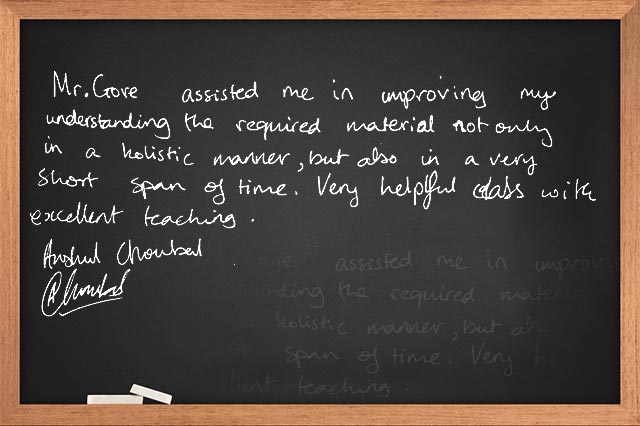 Mr. Gore assisted me in improving my
understanding the required material not only
in a holistic manner, but also in a very
short span of time. Very helpful class with
excellent teaching.
ore assisted me in improvin
nding the required mater
holistic manner, but also
span of time. Very he
ellent teaching.